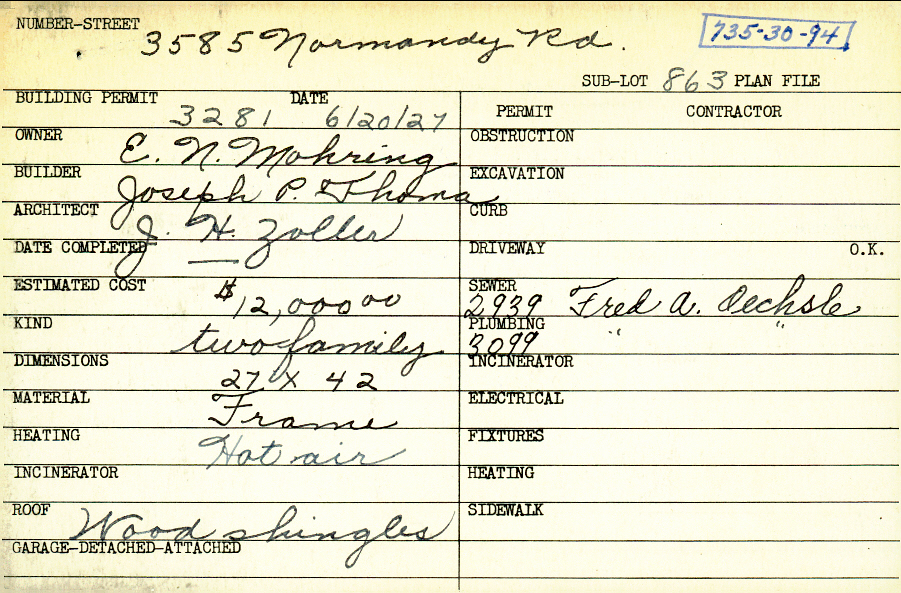 NUMBER-STREET 3585 Normandy Rd. 735-30-94
SUB-LOT 863 PLAN FILE
BUILDING PERMIT 3281 DATE 6/20/27
PERMIT CONTRACTOR
OWNER E. N. Mohring
OBSTRUCTION
BUILDER Joseph P. Thoma
EXCAVATION
ARCHITECT J. H. Zoller
CURB
DATE COMPLETED —
DRIVEWAY O.K.
ESTIMATED COST $12,000 00
SEWER 2939 Fred A. Oechsle
KIND two family
PLUMBING 3099 " "
DIMENSIONS 27 X 42
INCINERATOR
MATERIAL Frame
ELECTRICAL
HEATING Hot air
FIXTURES
INCINERATOR
HEATING
ROOF Wood shingles
SIDEWALK
GARAGE-DETACHED-ATTACHED